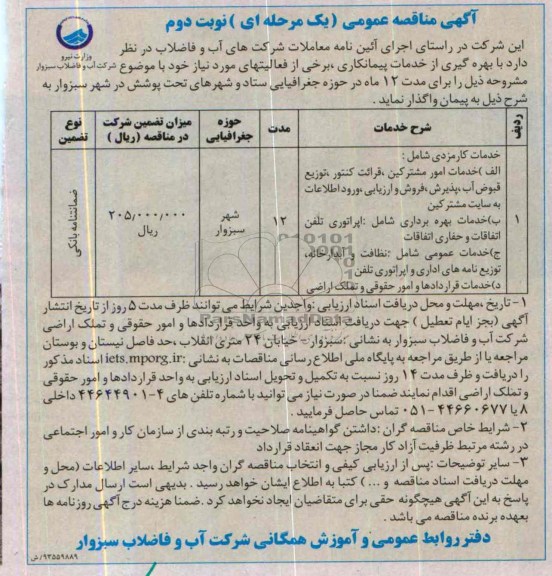 آگهی مناقصه عمومی (یک مرحله ای) نوبت دوم
وزارت نیرو
شرکت آب و فاضلاب سبزوار
این شرکت در راستای اجرای آئین نامه معاملات شرکت های آب و فاضلاب در نظر
دارد با بهره گیری از خدمات پیمانکاری ،برخی از فعالیتهای مورد نیاز خود با موضوع
مشروحه ذیل را برای مدت ۱۲ ماه در حوزه جغرافیایی ستاد و شهرهای تحت پوشش در شهر سبزوار به
شرح ذیل به پیمان واگذار نماید .
ردیف
شرح خدمات
مدت
حوزه جغرافیایی
میزان تضمین شرکت در مناقصه (ریال)
نوع تضمین
۱
خدمات کارمزدی شامل :
الف )خدمات امور مشترکین ،قرائت کنتور ،توزیع
قبوض آب،پذیرش ،فروش و ارزیابی ،ورود اطلاعات
به سایت مشترکین
ب)خدمات بهره برداری شامل :اپراتوری تلفن
اتفاقات و حفاری اتفاقات
ج)خدمات عمومی شامل :نظافت و آبدارخانه،
توزیع نامه های اداری و اپراتوری تلفن
د)خدمات قراردادها و امور حقوقی و تملک اراضی
۱۲
شهر سبزوار
۲۰۵٫۰۰۰٫۰۰۰ ریال
ضمانتنامه بانکی
۱- تاریخ ،مهلت و محل دریافت اسناد ارزیابی :واجدین شرایط می توانند ظرف مدت ۵ روز از تاریخ انتشار
آگهی (بجز ایام تعطیل ) جهت دریافت اسناد ارزیابی به واحد قراردادها و امور حقوقی و تملک اراضی
شرکت آب و فاضلاب سبزوار به نشانی :سبزوار- خیابان ۲۴ متری انقلاب ،حد فاصل نیستان و بوستان
مراجعه یا از طریق مراجعه به پایگاه ملی اطلاع رسانی مناقصات به نشانی :iets.mporg.ir اسناد مذکور
را دریافت و ظرف مدت ۱۴ روز نسبت به تکمیل و تحویل اسناد ارزیابی به واحد قراردادها و امور حقوقی
و تملک اراضی اقدام نمایند ضمنا در صورت نیاز می توانید با شماره تلفن های ۴-۴۴۶۴۴۹۰۱ داخلی
۸ یا ۴۴۶۶۰۶۷۷-۰۵۱ تماس حاصل فرمایید .
۲- شرایط خاص مناقصه گران :داشتن گواهینامه صلاحیت و رتبه بندی از سازمان کار و امور اجتماعی
در رشته مرتبط ظرفیت آزاد کار مجاز جهت انعقاد قرارداد
۳- سایر توضیحات :پس از ارزیابی کیفی و انتخاب مناقصه گران واجد شرایط ،سایر اطلاعات (محل و
مهلت دریافت اسناد مناقصه و ... ) کتبا به اطلاع ایشان خواهد رسید . بدیهی است ارسال مدارک در
پاسخ به این آگهی هیچگونه حقی برای متقاضیان ایجاد نخواهد کرد .ضمنا هزینه درج آگهی روزنامه ها
بعهده برنده مناقصه می باشد .
دفتر روابط عمومی و آموزش همگانی شرکت آب و فاضلاب سبزوار
۹۳۵۵۹۸۸۹/ش